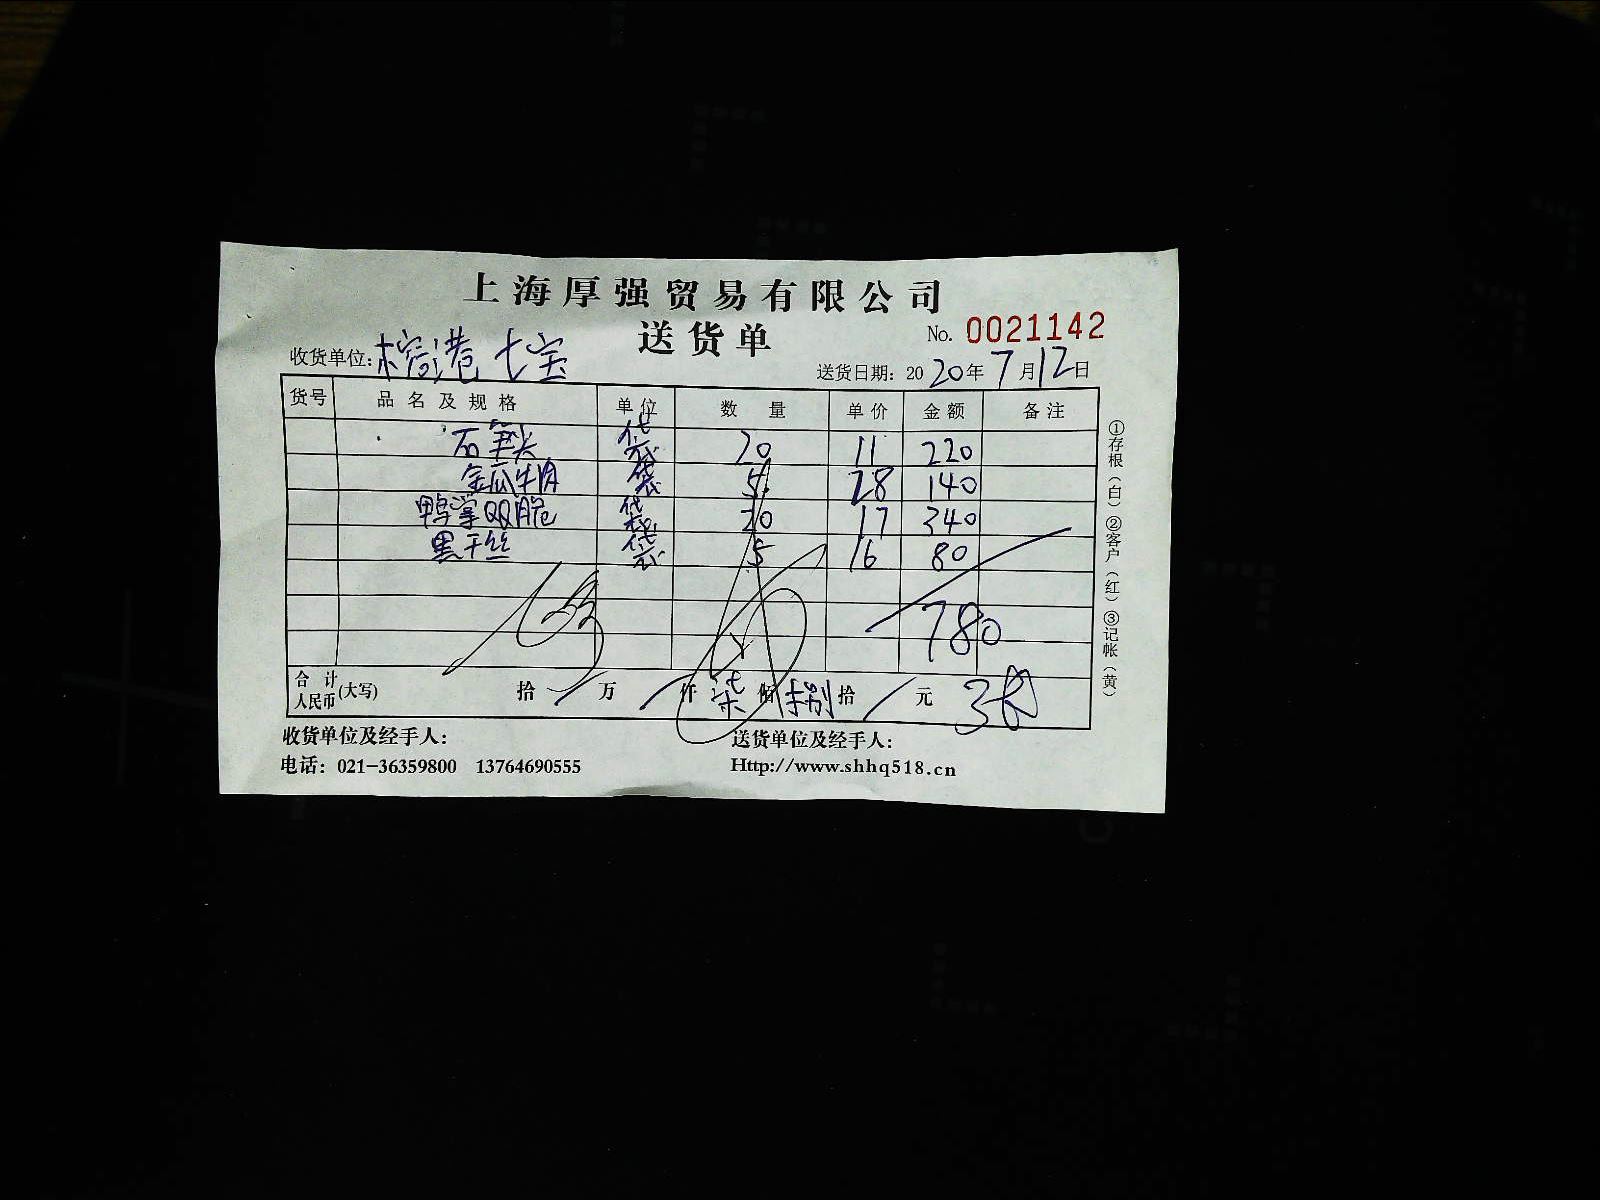 上海厚强贸易有限公司
送货单
No. 0021142
收货单位: 榕港 七宝
送货日期: 2020年7月12日
货号 品名及规格 单位 数量 单价 金额 备注
石笋尖 袋 20 11 220
金瓜牛肉 袋 5 28 140
鸭掌QQ脆 袋 20 17 340
黑干丝 袋 5 16 80
780
合计人民币(大写) 拾 / 万 / 仟 柒 佰 捌 拾 / 元
收货单位及经手人: 送货单位及经手人:
电话: 021-36359800 13764690555 Http://www.shhq518.cn
①存根(白)②客户(红)③记帐(黄)